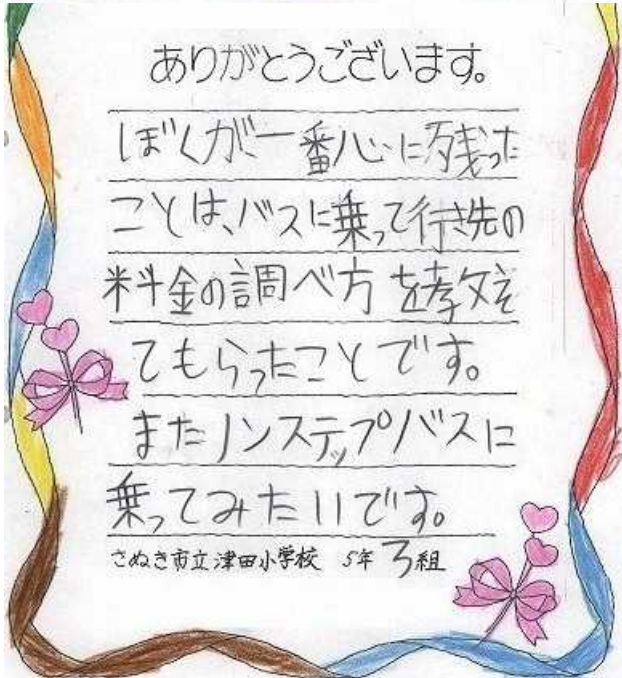 ありがとうございます。
ぼくが一番心に残った
ことは、バスに乗って行き先の
料金の調べ方を教え
てもらったことです。
またノンステップバスに
乗ってみたいです。
さぬき市立津田小学校 5年 ろ組